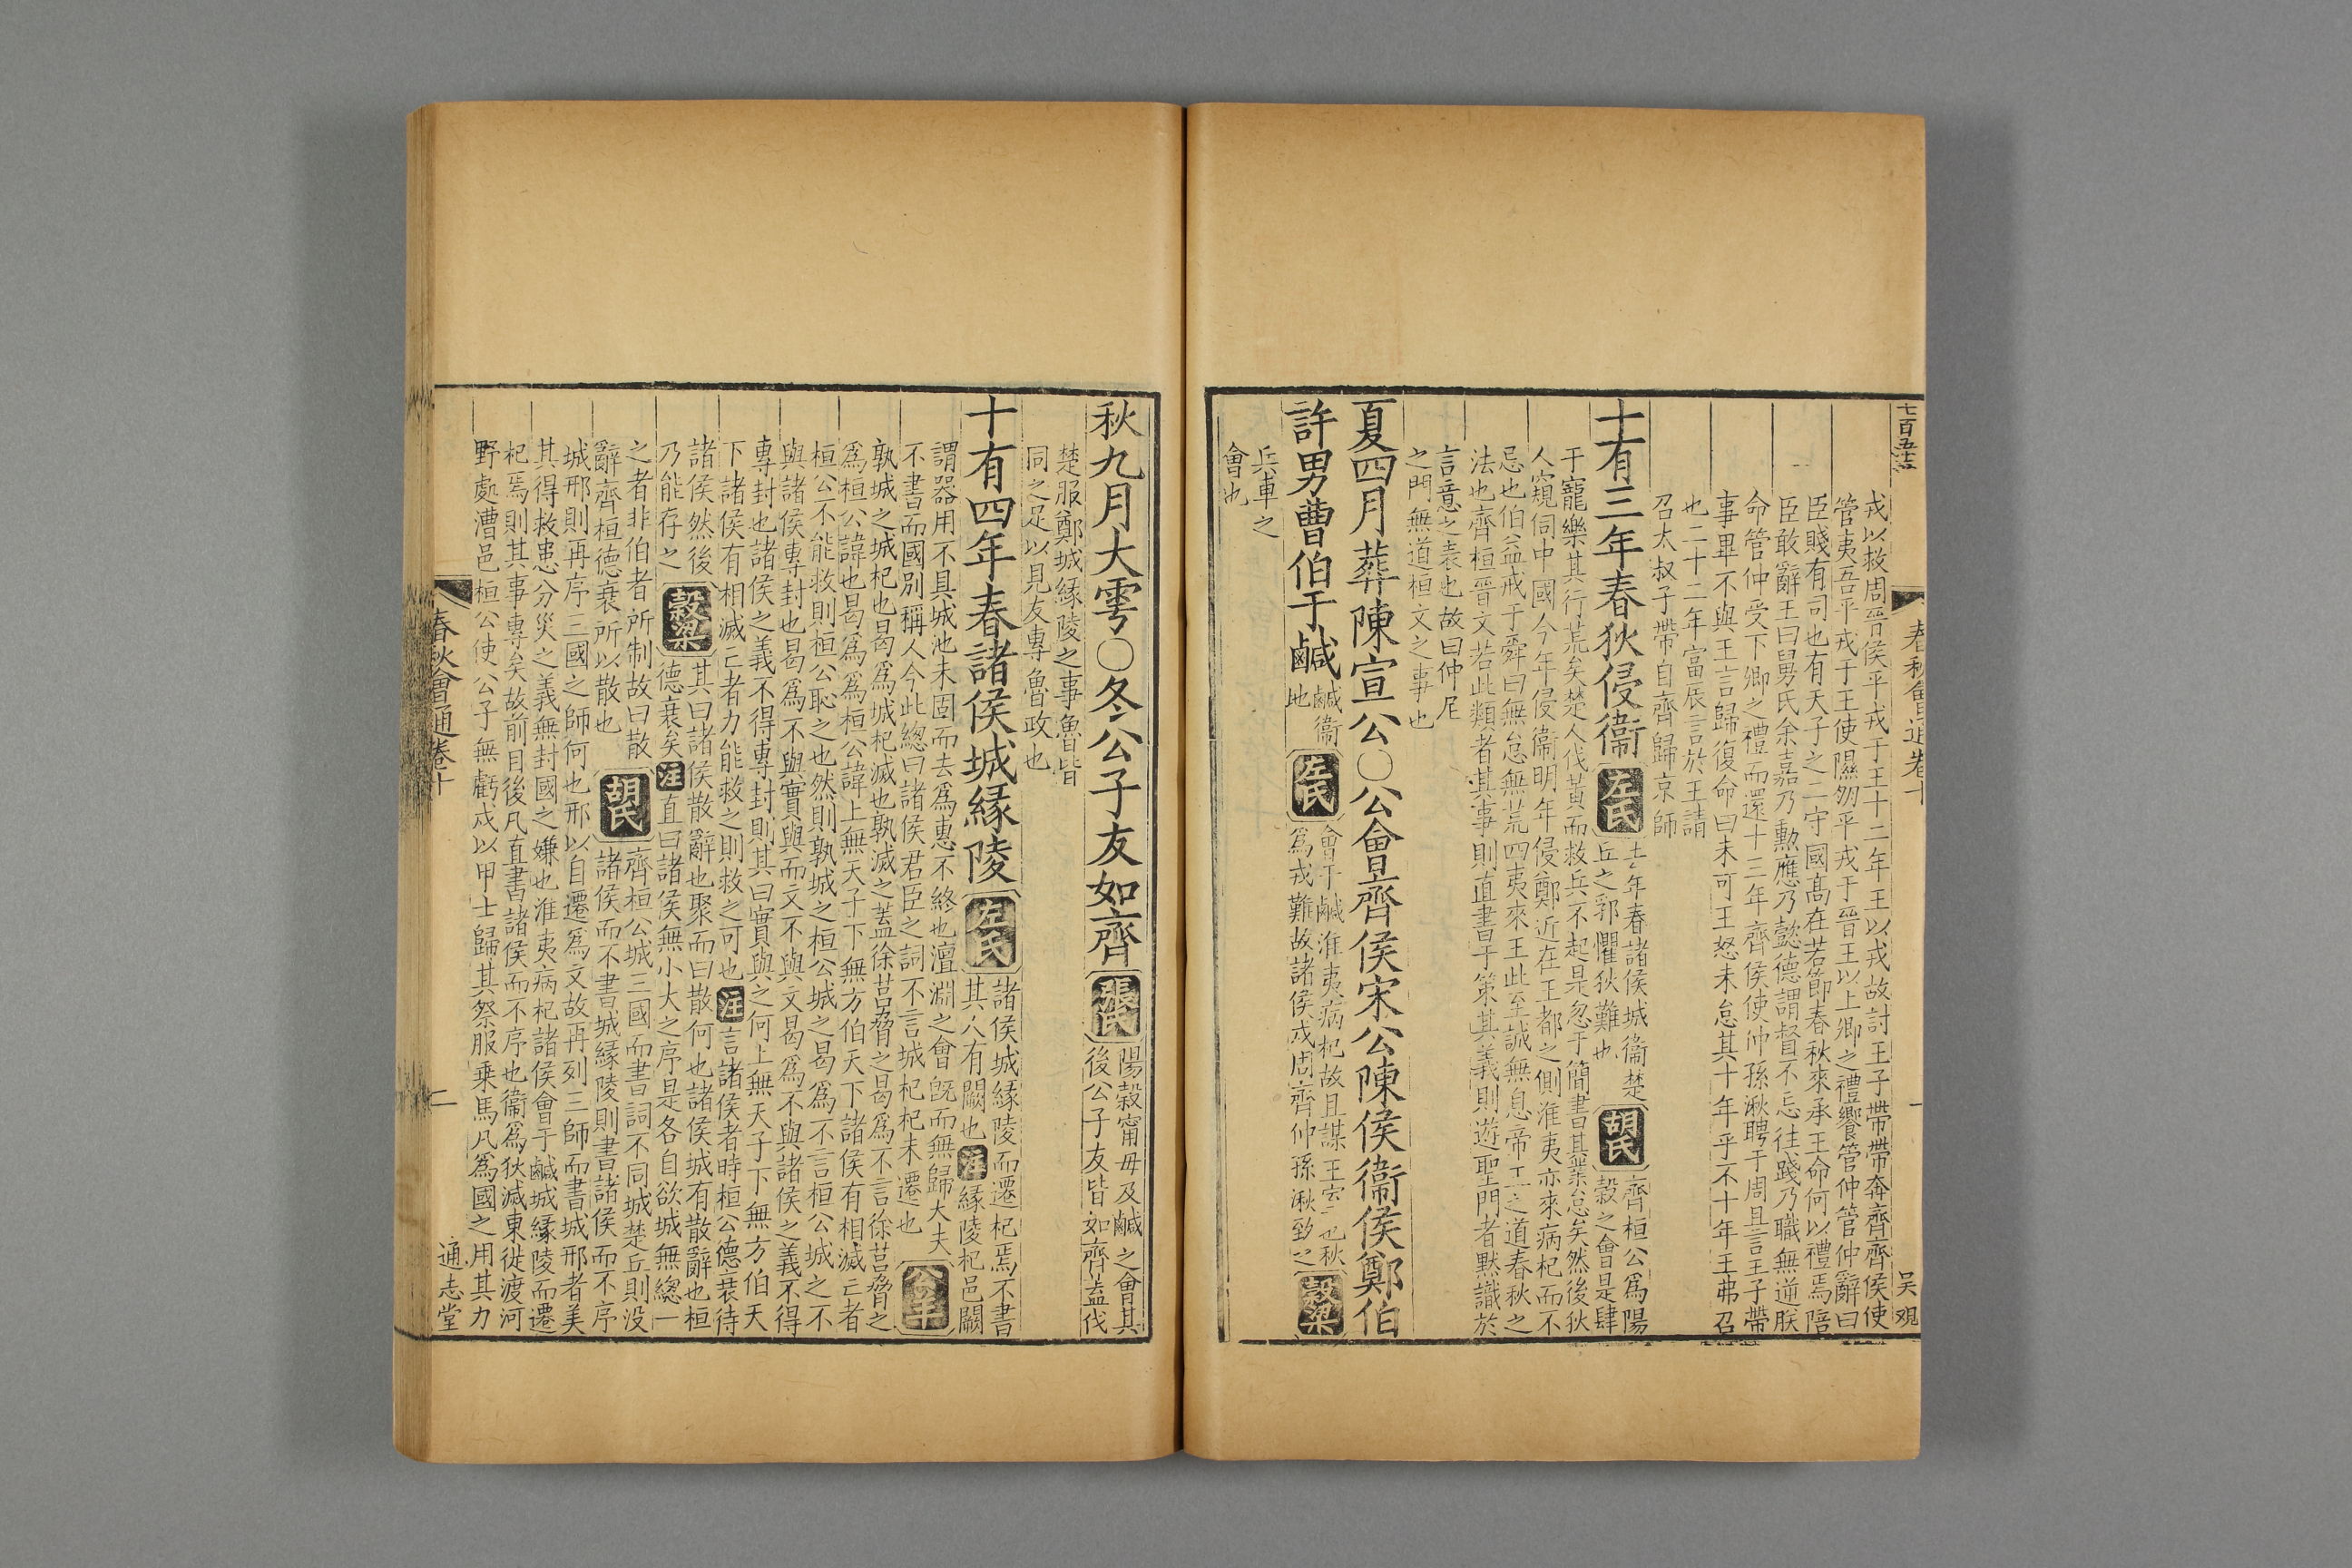 七百五十二
春秋會通卷十
一
吳觀
戎以救周晉侯平戎于王十二年王以戎故討王子帶帶奔齊齊侯使
管夷吾平戎于王使隰朋平戎于晉王以上卿之禮饗管仲管仲辭曰
臣賤有司也有天子之二守國髙在若節春秋來承王命何以禮焉陪
臣敢辭王曰舅氏余嘉乃勲應乃懿德謂督不忘往踐乃職無逆朕
命管仲受下卿之禮而還十三年齊侯使仲孫湫聘于周且言王子帶
事畢不與王言歸復命曰未可王怒未怠其十年乎不十年王弗召
也二十二年富辰言於王請
召太叔子帶自齊歸京師
十有三年春狄侵衞
左氏
十二年春諸侯城衞楚
丘之郛懼狄難也
胡氏
齊桓公爲陽
穀之會是肆
于寵樂其行荒矣楚人伐黃而救兵不起是忽于簡書其業怠矣然後狄
人窺伺中國今年侵衞明年侵鄭近在王都之側淮夷亦來病杞而不
忌也伯益戒于舜曰無怠無荒四夷來王此至誠無息帝王之道春秋之
法也齊桓晉文若此類者其事則直書于策其義則遊聖門者默識於
言意之表也故曰仲尼
之門無道桓文之事也
夏四月葬陳宣公○公會齊侯宋公陳侯衞侯鄭伯
許男曹伯于鹹
鹹衞
地
左氏
會于鹹淮夷病杞故且謀王室也秋
爲戎難故諸侯戍周齊仲孫湫致之
穀梁
兵車之
會也
秋九月大雩○冬公子友如齊
張氏
陽穀甯毋及鹹之會其
後公子友皆如齊葢伐
楚服鄭城縁陵之事魯皆
同之足以見友專魯政也
十有四年春諸侯城縁陵
左氏
諸侯城縁陵而遷杞焉不書
其人有闕也
注
縁陵杞邑闕
謂器用不具城池未固而去爲惠不終也澶淵之會旣而無歸大夫
不書而國別稱人今此緫曰諸侯君臣之詞不言城杞杞未遷也
公羊
孰城之城杞也曷爲城杞滅也孰滅之葢徐莒脅之曷爲不言徐莒脅之
爲桓公諱也曷爲爲桓公諱上無天子下無方伯天下諸侯有相滅亡者
桓公不能救則桓公恥之也然則孰城之桓公城之曷爲不言桓公城之不
與諸侯專封也曷爲不與實與而文不與文曷爲不與諸侯之義不得
專封也諸侯之義不得專封則其曰實與之何上無天子下無方伯天
下諸侯有相滅亡者力能救之則救之可也
注
言諸侯者時桓公德衰待
諸侯然後
乃能存之
穀梁
其曰諸侯散辭也聚而曰散何也諸侯城有散辭也桓
德衰矣
注
直曰諸侯無小大之序是各自欲城無緫一
之者非伯者所制故曰散
辭齊桓德衰所以散也
胡氏
齊桓公城三國而書詞不同城楚丘則没
諸侯而不書城縁陵則書諸侯而不序
城邢則再序三國之師何也邢以自遷爲文故再列三師而書城邢者美
其得救患分災之義無封國之嫌也淮夷病杞諸侯會于鹹城縁陵而遷
杞焉則其事專矣故前目後凡直書諸侯而不序也衞爲狄滅東徙渡河
野處漕邑桓公使公子無虧戍以甲士歸其祭服乘馬凡爲國之用其力
春秋會通卷十
二
通志堂